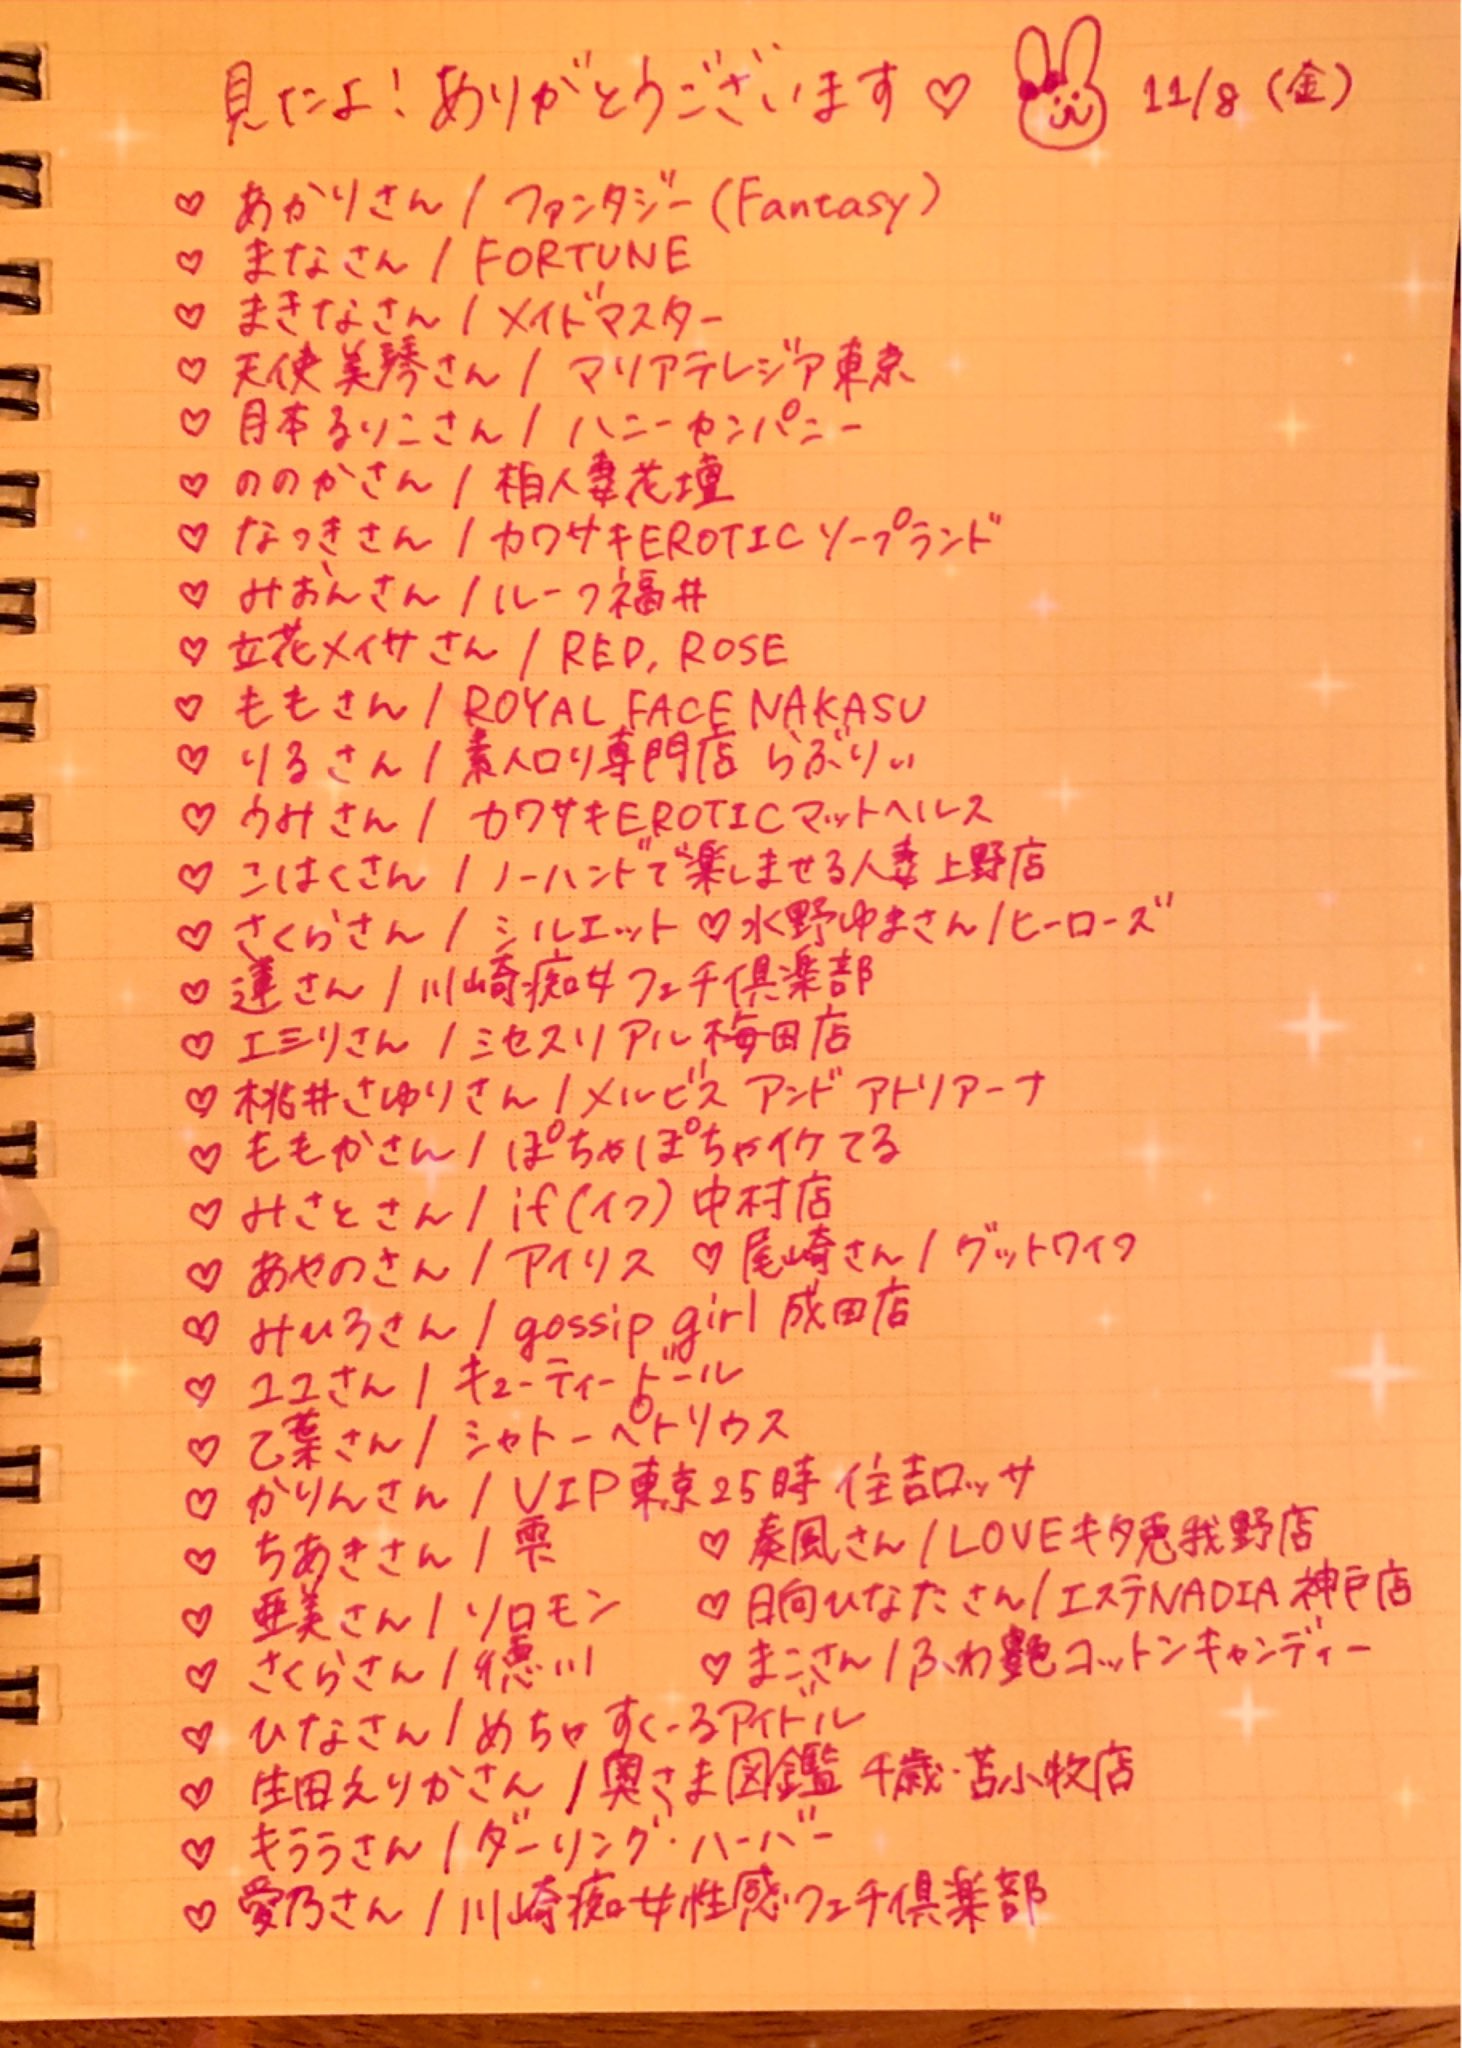 見たよ!ありがとうございます♡ 11/8(金)
♡ あかりさん/ファンタジー(Fantasy)
♡ まなさん/FORTUNE
♡ まきなさん/メイドマスター
♡ 天使美琴さん/マリアテレジア東京
♡ 月本るりこさん/ハニーカンパニー
♡ ののかさん/柏人妻花壇
♡ なつきさん/カワサキEROTICソープランド
♡ みおんさん/ルーフ福井
♡ 立花メイサさん/RED, ROSE
♡ ももさん/ROYAL FACE NAKASU
♡ りるさん/素人ロリ専門店 らぶりぃ
♡ うみさん/カワサキEROTICマットヘルス
♡ こはくさん/ノーハンドで楽しませる人妻 上野店
♡ さくらさん/シルエット ♡水野ゆまさん/ヒーローズ
♡ 蓮さん/川崎痴女フェチ倶楽部
♡ エミリさん/ミセスリアル梅田店
♡ 桃井さゆりさん/メルビス アンド アドリアーナ
♡ ももかさん/ぽちゃぽちゃイケてる
♡ みさとさん/if(イフ)中村店
♡ あやのさん/アイリス ♡尾崎さん/グットワイフ
♡ みひろさん/gossip girl 成田店
♡ ユユさん/キューティードール
♡ 乙葉さん/シャトーペトリウス
♡ かりんさん/VIP東京25時 住吉ロッサ
♡ ちあきさん/雫 ♡ 奏風さん/LOVEキタ兎我野店
♡ 亜美さん/ソロモン ♡ 日向ひなたさん/エステNADIA神戸店
♡ さくらさん/徳川 ♡ まこさん/ふわ艶コットンキャンディー
♡ ひなさん/めちゃすくーるアイドル
♡ 生田えりかさん/奥さま図鑑 千歳・苫小牧店
♡ キララさん/ダーリング・ハーバー
♡ 愛乃さん/川崎痴女性感フェチ倶楽部